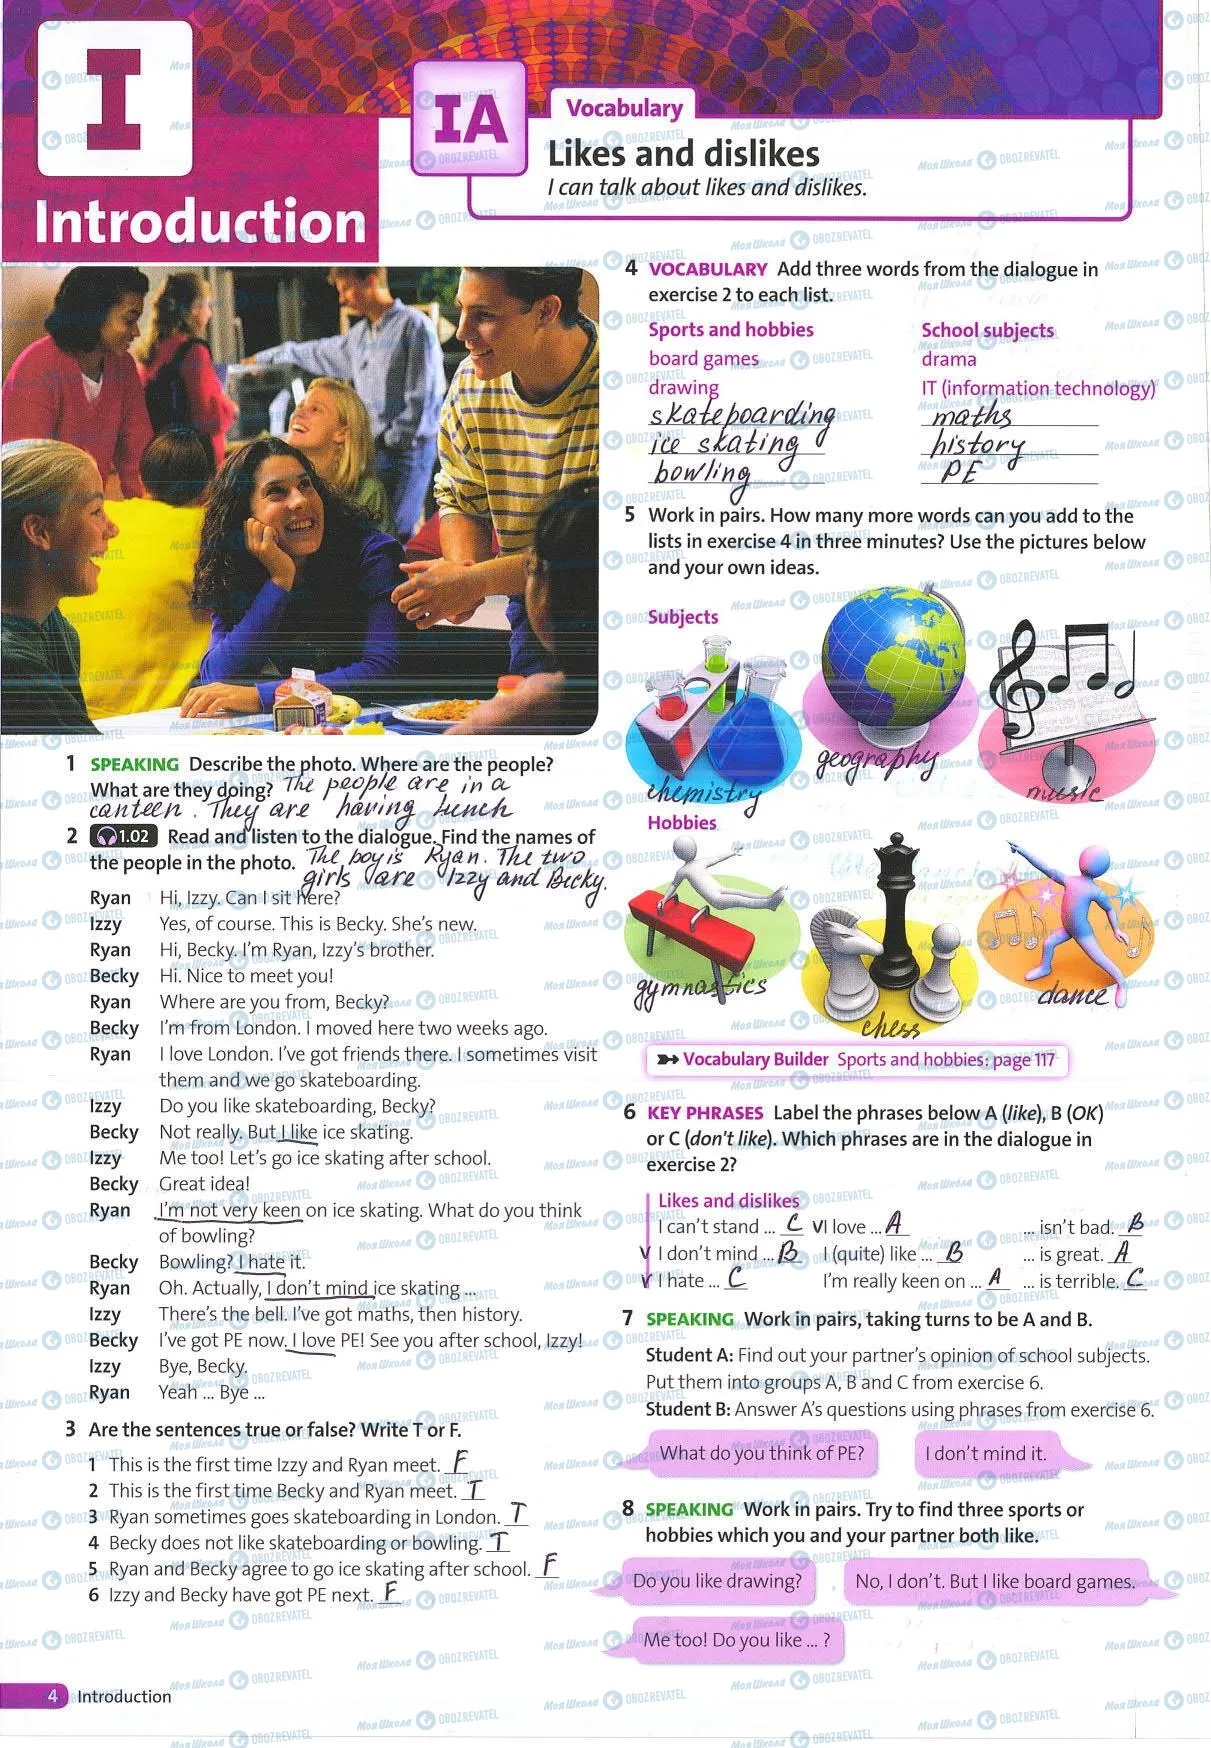 I
Introduction
IA
Vocabulary
Likes and dislikes
I can talk about likes and dislikes.
1 SPEAKING Describe the photo. Where are the people?
What are they doing? The people are in a
canteen. They are having lunch
2 1.02 Read and listen to the dialogue. Find the names of
the people in the photo. The boy is Ryan. The two
girls are Izzy and Becky.
Ryan Hi, Izzy. Can I sit here?
Izzy Yes, of course. This is Becky. She's new.
Ryan Hi, Becky. I'm Ryan, Izzy's brother.
Becky Hi. Nice to meet you!
Ryan Where are you from, Becky?
Becky I'm from London. I moved here two weeks ago.
Ryan I love London. I've got friends there. I sometimes visit
them and we go skateboarding.
Izzy Do you like skateboarding, Becky?
Becky Not really. But I like ice skating.
Izzy Me too! Let's go ice skating after school.
Becky Great idea!
Ryan I'm not very keen on ice skating. What do you think
of bowling?
Becky Bowling? I hate it.
Ryan Oh. Actually, I don't mind ice skating ...
Izzy There's the bell. I've got maths, then history.
Becky I've got PE now. I love PE! See you after school, Izzy!
Izzy Bye, Becky.
Ryan Yeah ... Bye ...
3 Are the sentences true or false? Write T or F.
1 This is the first time Izzy and Ryan meet. F
2 This is the first time Becky and Ryan meet. T
3 Ryan sometimes goes skateboarding in London. T
4 Becky does not like skateboarding or bowling. T
5 Ryan and Becky agree to go ice skating after school. F
6 Izzy and Becky have got PE next. F
4 VOCABULARY Add three words from the dialogue in
exercise 2 to each list.
Sports and hobbies School subjects
board games drama
drawing IT (information technology)
skateboarding maths
ice skating history
bowling PE
5 Work in pairs. How many more words can you add to the
lists in exercise 4 in three minutes? Use the pictures below
and your own ideas.
Subjects
chemistry geography music
Hobbies
gymnastics chess dance
Vocabulary Builder Sports and hobbies: page 117
6 KEY PHRASES Label the phrases below A (like), B (OK)
or C (don't like). Which phrases are in the dialogue in
exercise 2?
Likes and dislikes
I can't stand ... C V I love ... A ... isn't bad. B
V I don't mind ... B I (quite) like ... B ... is great. A
V I hate ... C I'm really keen on ... A ... is terrible. C
7 SPEAKING Work in pairs, taking turns to be A and B.
Student A: Find out your partner's opinion of school subjects.
Put them into groups A, B and C from exercise 6.
Student B: Answer A's questions using phrases from exercise 6.
What do you think of PE? I don't mind it.
8 SPEAKING Work in pairs. Try to find three sports or
hobbies which you and your partner both like.
Do you like drawing? No, I don't. But I like board games.
Me too! Do you like ... ?
4 Introduction
МояШкола OBOZREVATEL